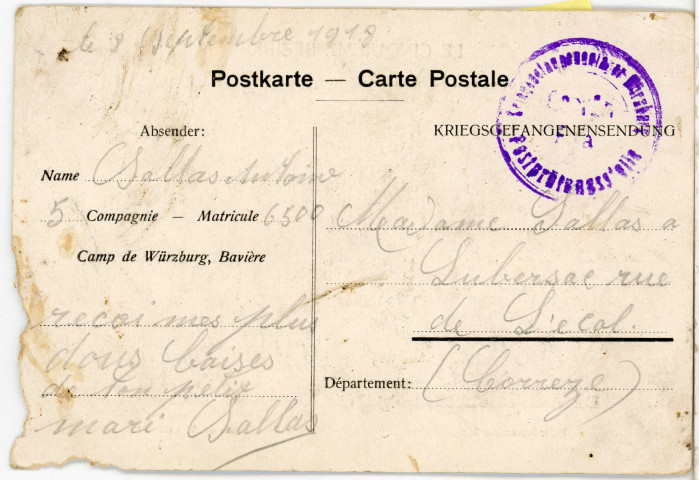 le 8 Septembre 1918
Postkarte — Carte Postale
Absender:
Name Sallas Antoine
5 Compagnie — Matricule 6500
Camp de Würzburg, Bavière
recoi mes plus
dous baises
de ton petit
mari Sallas
KRIEGSGEFANGENENSENDUNG
Madame Sallas a
Lubersac rue
de L'ecol.
Département: (Correze)
Würzburg
Postprüfungsstelle